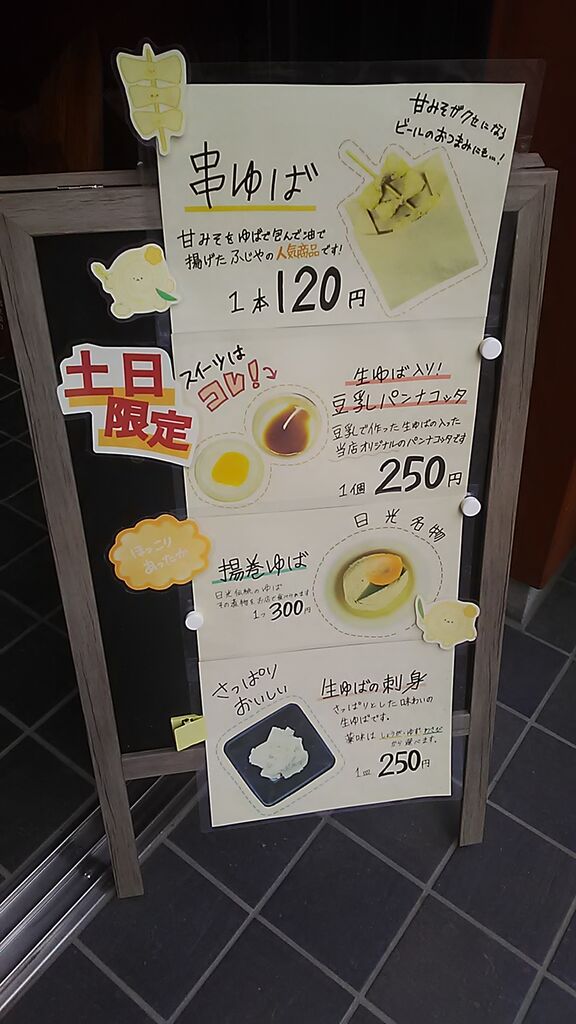 甘みそがクセになる
ビールのおつまみにも…!
串ゆば
甘みそをゆばで包んで油で
揚げたふじやの人気商品です!
1本120円
土日
限定
スイーツは
コレ!
生ゆば入り!
豆乳パンナコッタ
豆乳で作った生ゆばの入った
当店オリジナルのパンナコッタです
1個 250円
ほっこり
あったか
日光名物
揚巻ゆば
日光伝統のゆば
その煮物をお店で食べられます
1つ 300円
さっぱり
おいしい
生ゆばの刺身
さっぱりとした味わいの
生ゆばです。
薬味はしょうが・ゆず・わさび
から選べます。
1皿 250円